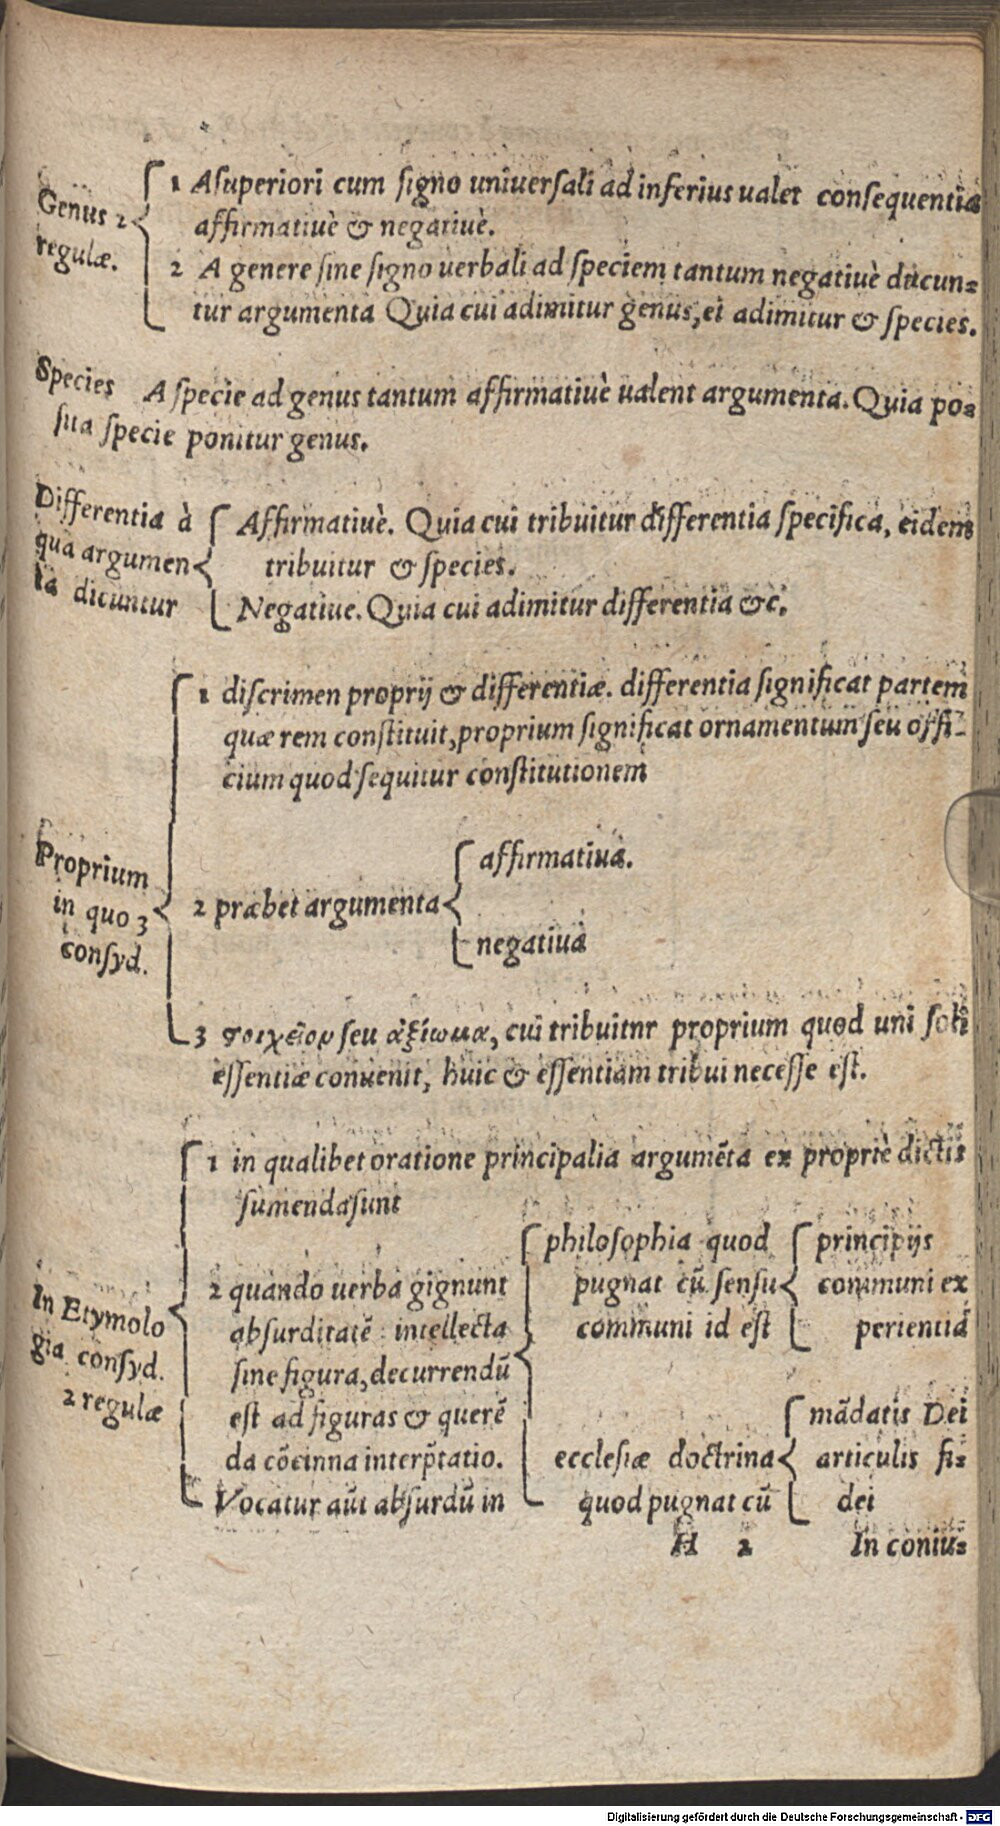 Genus 2
regulæ.
1 A superiori cum signo universali ad inferius ualet consequentia
affirmatiuè & negatiuè.
2 A genere sine signo uerbali ad speciem tantum negatiuè ducun=
tur argumenta Quia cui adimitur genus, ei adimitur & species.
Species A specie ad genus tantum affirmatiuè ualent argumenta. Quia po=
sita specie ponitur genus.
Differentia à
qua argumen
ta dicuntur
Affirmatiuè. Quia cui tribuitur differentia specifica, eidem
tribuitur & species.
Negatiue. Quia cui adimitur differentia &c.
Proprium
in quo 3
consyd.
1 discrimen proprij & differentiæ. differentia significat partem
quæ rem constituit, proprium significat ornamentum seu offi-
cium quod sequitur constitutionem
2 præbet argumenta
affirmatiua.
negatiua
3 στοιχεῖον seu ἀξίωμα, cui tribuitnr proprium quod uni soli
essentiæ conuenit, huic & essentiam tribui necesse est.
In Etymolo
gia consyd.
2 regulæ
1 in qualibet oratione principalia argumēta ex propriè dictis
sumenda sunt
2 quando uerba gignunt
absurditatē intellecta
sine figura, decurrendū
est ad figuras & querē
da cōcinna interp̄tatio.
Vocatur aūt absurdū in
philosophia quod
pugnat cū sensu
communi id est
principijs
communi ex
perientiā
ecclesiæ doctrina
quod pugnat cū
mādatis Dei
articulis fi=
dei
H 2 In coniu=
Digitalisierung gefördert durch die Deutsche Forschungsgemeinschaft - DFG